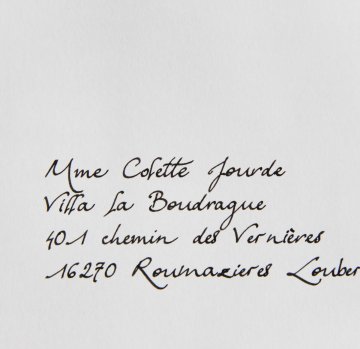 Mme Colette Jourde
Villa La Boudrague
401 chemin des Vernières
16270 Roumazieres Louber